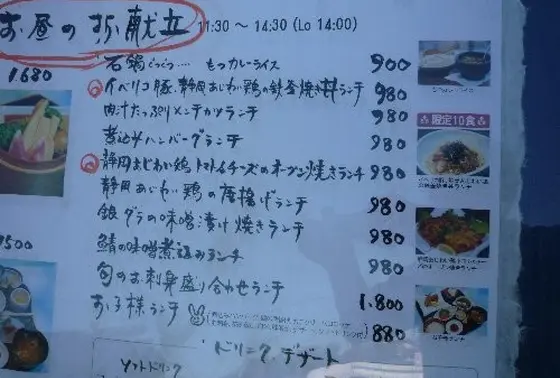 お昼のお献立 11:30 〜 14:30 (Lo 14:00)
1.680
石鍋ぐつぐつ… もつカレーライス 900
イベリコ豚、静岡あじわい鶏の鉄釜焼き丼ランチ 980
肉汁たっぷりメンチカツランチ 980
煮込みハンバーグランチ 980
静岡あじわい鶏トマト&チーズのオーブン焼きランチ 980
静岡あじわい鶏の唐揚げランチ 980
銀ダラの味噌漬け焼きランチ 980
鯖の味噌煮込みランチ 980
旬のお刺身盛り合わせランチ 1.800
お子様ランチ 880
限定10食
500
ドリンク、デザート
ソフトドリンク